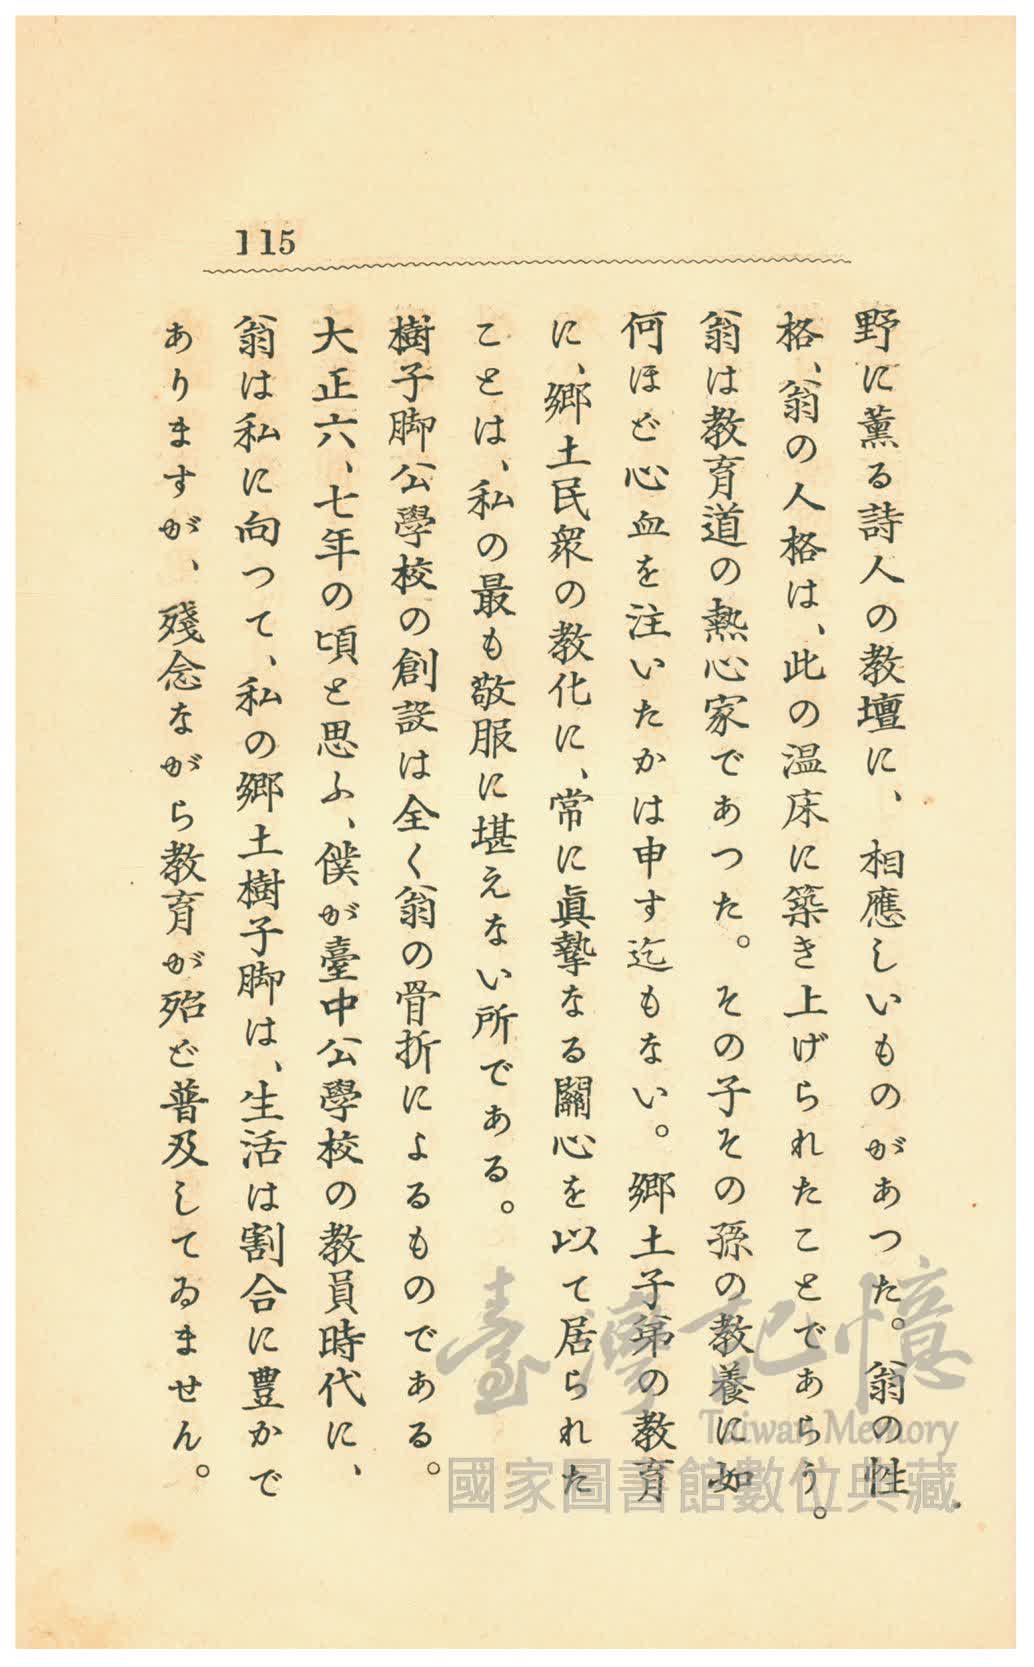 115
野に薫る詩人の教壇に、相應しいものがあつた。翁の性
格、翁の人格は、此の温床に築き上げられたことであらう。
翁は教育道の熱心家であつた。その子その孫の教養に如
何ほど心血を注いたかは申す迄もない。郷土子弟の教育
に、郷土民衆の教化に、常に眞摯なる關心を以て居られた
ことは、私の最も敬服に堪えない所である。
樹子脚公學校の創設は全く翁の骨折によるものである。
大正六、七年の頃と思ふ、僕が臺中公學校の教員時代に、
翁は私に向つて、私の郷土樹子脚は、生活は割合に豊かで
ありますが、殘念ながら教育が殆ど普及してゐません。
臺灣記憶
Taiwan Memory
國家圖書館數位典藏